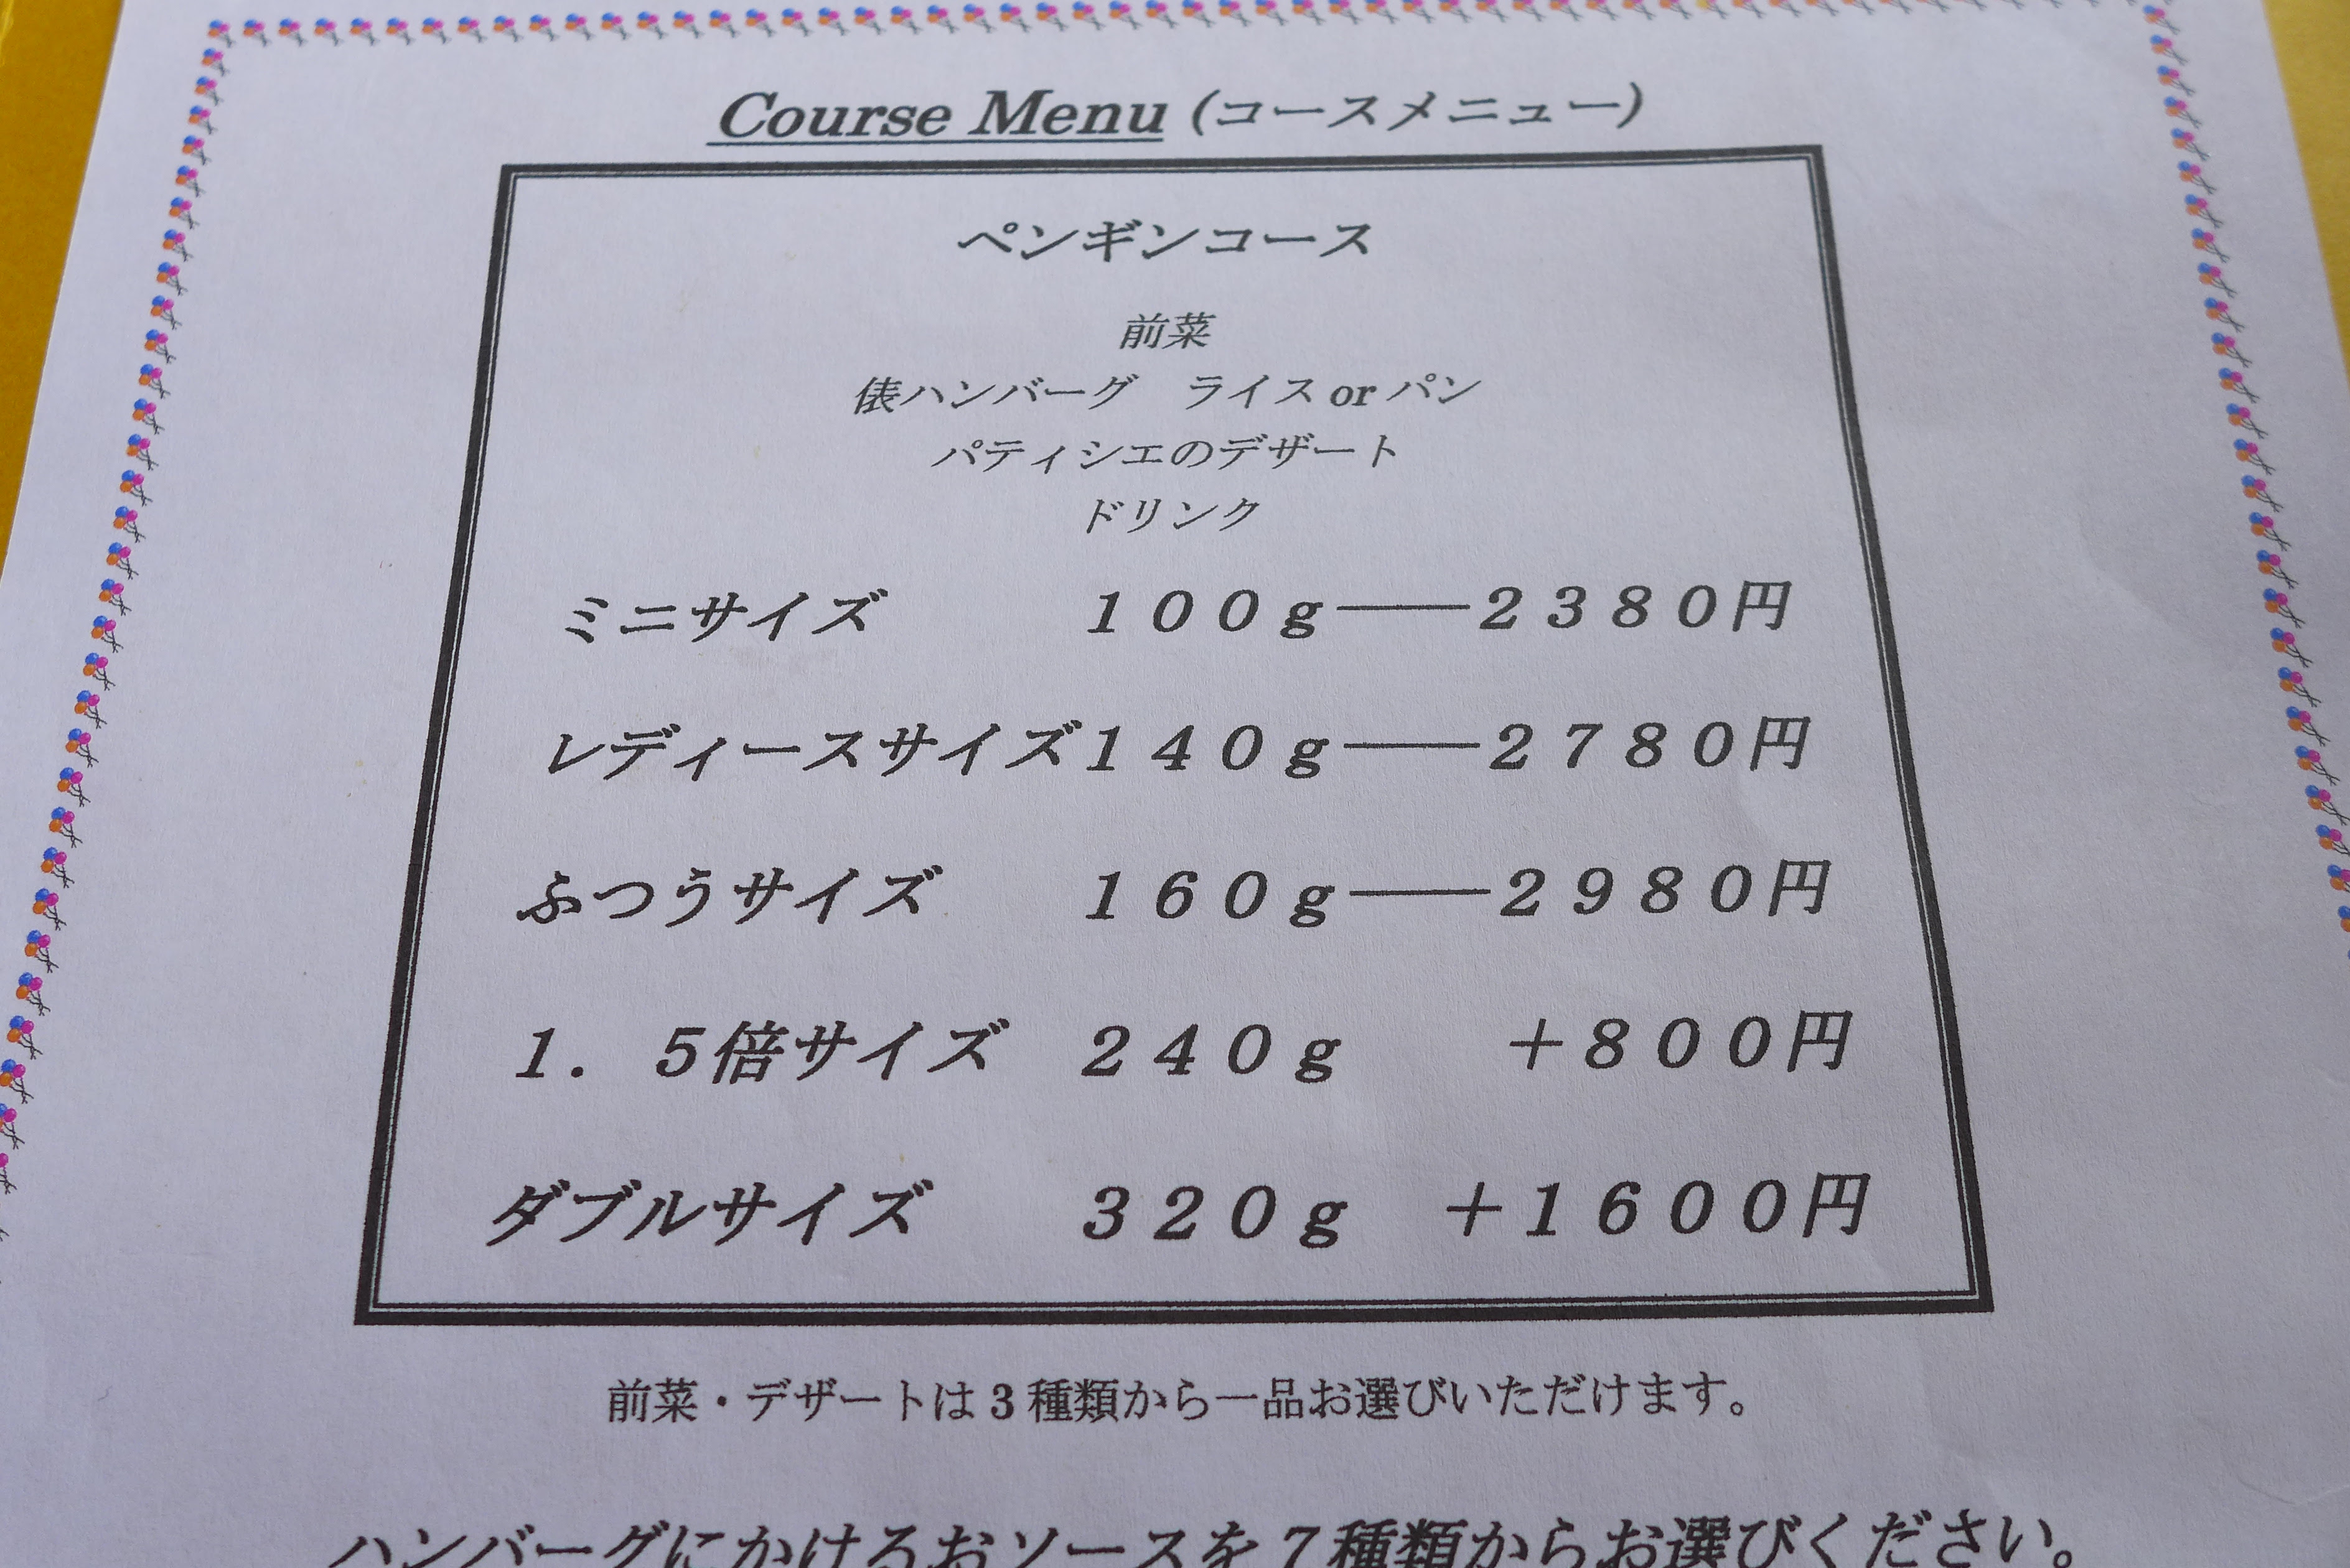 Course Menu (コースメニュー)
ペンギンコース
前菜
俵ハンバーグ　ライス or パン
パティシエのデザート
ドリンク
ミニサイズ　１００ｇ――２３８０円
レディースサイズ１４０ｇ――２７８０円
ふつうサイズ　１６０ｇ――２９８０円
１．５倍サイズ　２４０ｇ　＋８００円
ダブルサイズ　３２０ｇ　＋１６００円
前菜・デザートは 3 種類から一品お選びいただけます。
ハンバーグにかけるおソースを 7 種類からお選びください。